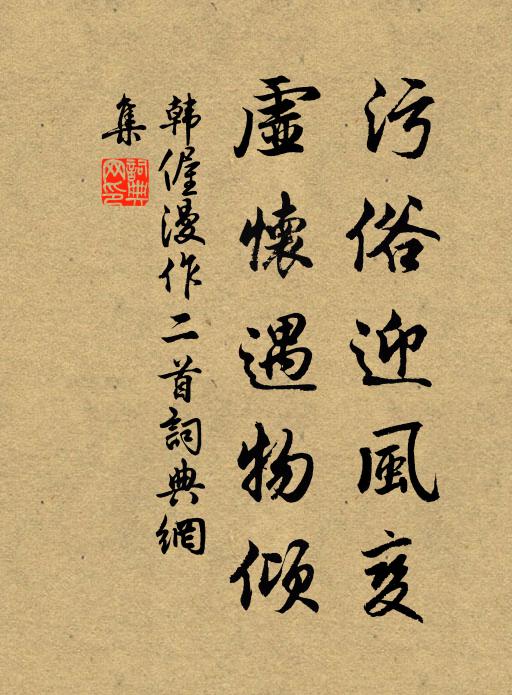 污俗迎風變
虛懷遇物傾
韓偓漫作二首詞典網
集
詞典網印